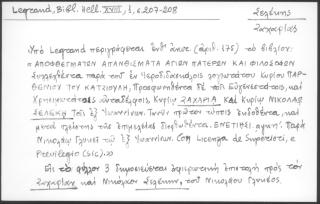 Legrand, Bibl. Hell. XVIII, 1, σ. 207-208
Σελέκης
Ζαχαρίας
Ὑπὸ Legrand περιγράφεται (ἀριθ. 175) τὸ βιβλίον:
«ΑΠΟΦΘΕΓΜΑΤΩΝ ΑΠΑΝΘΙΣΜΑΤΑ ΑΓΙΩΝ ΠΑΤΕΡΩΝ ΚΑΙ ΦΙΛΟΣΟΦΩΝ
συλλεχθέντα παρὰ τοῦ ἐν Ἱεροδιδασκάλοις λογιωτάτου Κυρίου ΠΑΡ-
ΘΕΝΙΟΥ ΤΟΥ ΚΑΤΖΙΟΥΛΗ, Προσφωνηθέντα δὲ τοῖς Εὐγενεστάτοις, καὶ
Χρησιμωτάτοις αὐταδέλφοις, Κυρίῳ ΖΑΧΑΡΙᾼ καὶ Κυρίῳ ΝΙΚΟΛΑΩ
ΣΕΛΕΚΗ τοῖς ἐξ Ἰωαννίνων. Νῦν πρῶτον τύποις ἐκδοθέντα, καὶ
μετὰ πλείστης τῆς ἐπιμελείας διορθωθέντα. ΕΝΕΤΙΗΣΙ Παρὰ
Νικολάῳ Γλυκεῖ τῷ ἐξ Ἰωαννίνων. Con Licenza de Superiori, e
Privilegio (sic).»
Εἰς τὸ φύλλον 3 δημοσιεύεται ἀφιερωτικὴ ἐπιστολὴ πρὸς τὸν
Ζαχαρίαν καὶ Νικόλαον Σελέκην, τοῦ Νικολάου Γλυκέως.